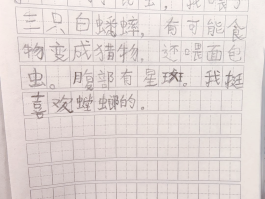 三只白蟠蟀，有可能食
物变成猎物，还喂面包
虫。腹部有星球。我挺
喜欢螳螂的。